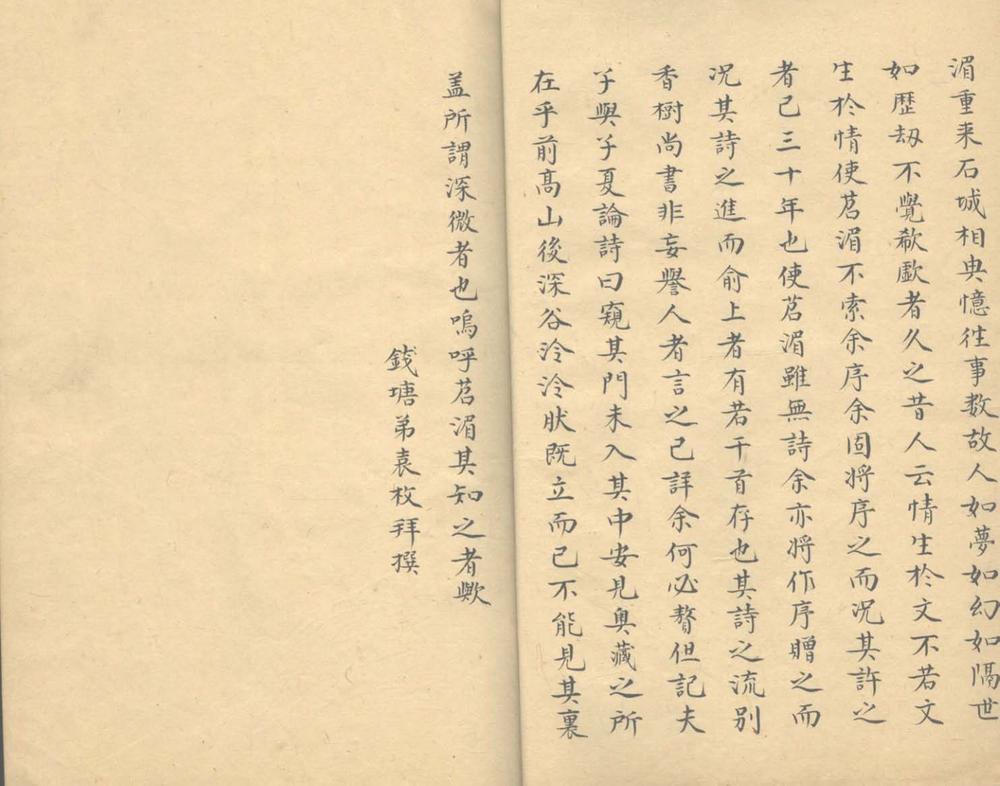 湄重来石城相與憶往事数故人如夢如幻如隔世
如歴刼不覺欷歔者久之昔人云情生於文不若文
生於情使茗湄不索余序余固将序之而况其許之
者已三十年也使茗湄雖無詩余亦将作序贈之而
况其詩之進而俞上者有若干首存也其詩之流别
香樹尚書非妄譽人者言之已詳余何必贅但記夫
子與子夏論詩曰窺其門未入其中安見奥藏之所
在乎前高山後深谷泠泠狀既立而已不能見其裏
盖所謂深微者也嗚呼茗湄其知之者歟
錢塘弟袁枚拜撰